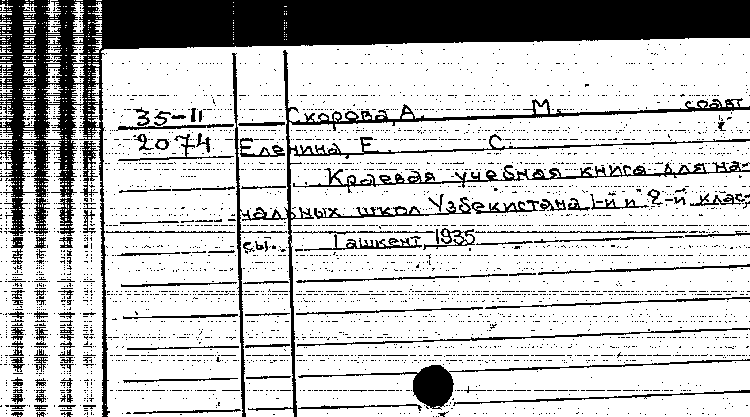 35-11 Скорова, А. М. соавт
2074 Еленина, Е. С.
Краевая учебная книга для на-
чальных школ Узбекистана 1-й и 2-й клас-
сы. Ташкент, 1935